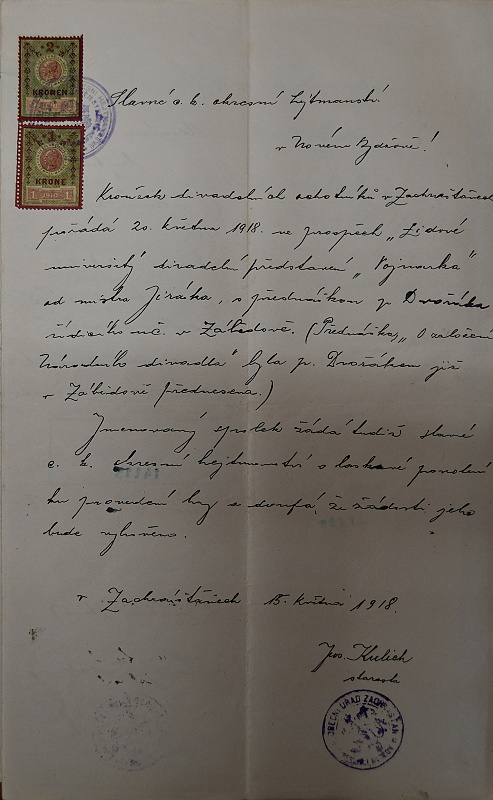 2
KRONEN
1
KRONE
1 1916 1
Slavné c. k. okresní hejtmanství
v Novém Bydžově!
Kroužek divadelních ochotníků v Zachrašťanech
pořádá 20. května 1918. ve prospěch „Lidové
university divadelní představení „Vojnarka"
od mistra Jiráska, s přednáškou p. Dvořáka
řídícího uč. v Zábědově. (Přednáška „O založení
Národního divadla" byla p. Dvořákem již
v Zábědově přednesena.)
Jmenovaný spolek žádá tudíž slavné
c. k. okresní hejtmanství o laskavé povolení
ku provedení hry a doufá, že žádosti jeho
bude vyhověno.
V Zachrašťanech 15. května 1918.
Jos. Kulich
starosta
OBECNÍ ÚŘAD ZACHRAŠŤAN